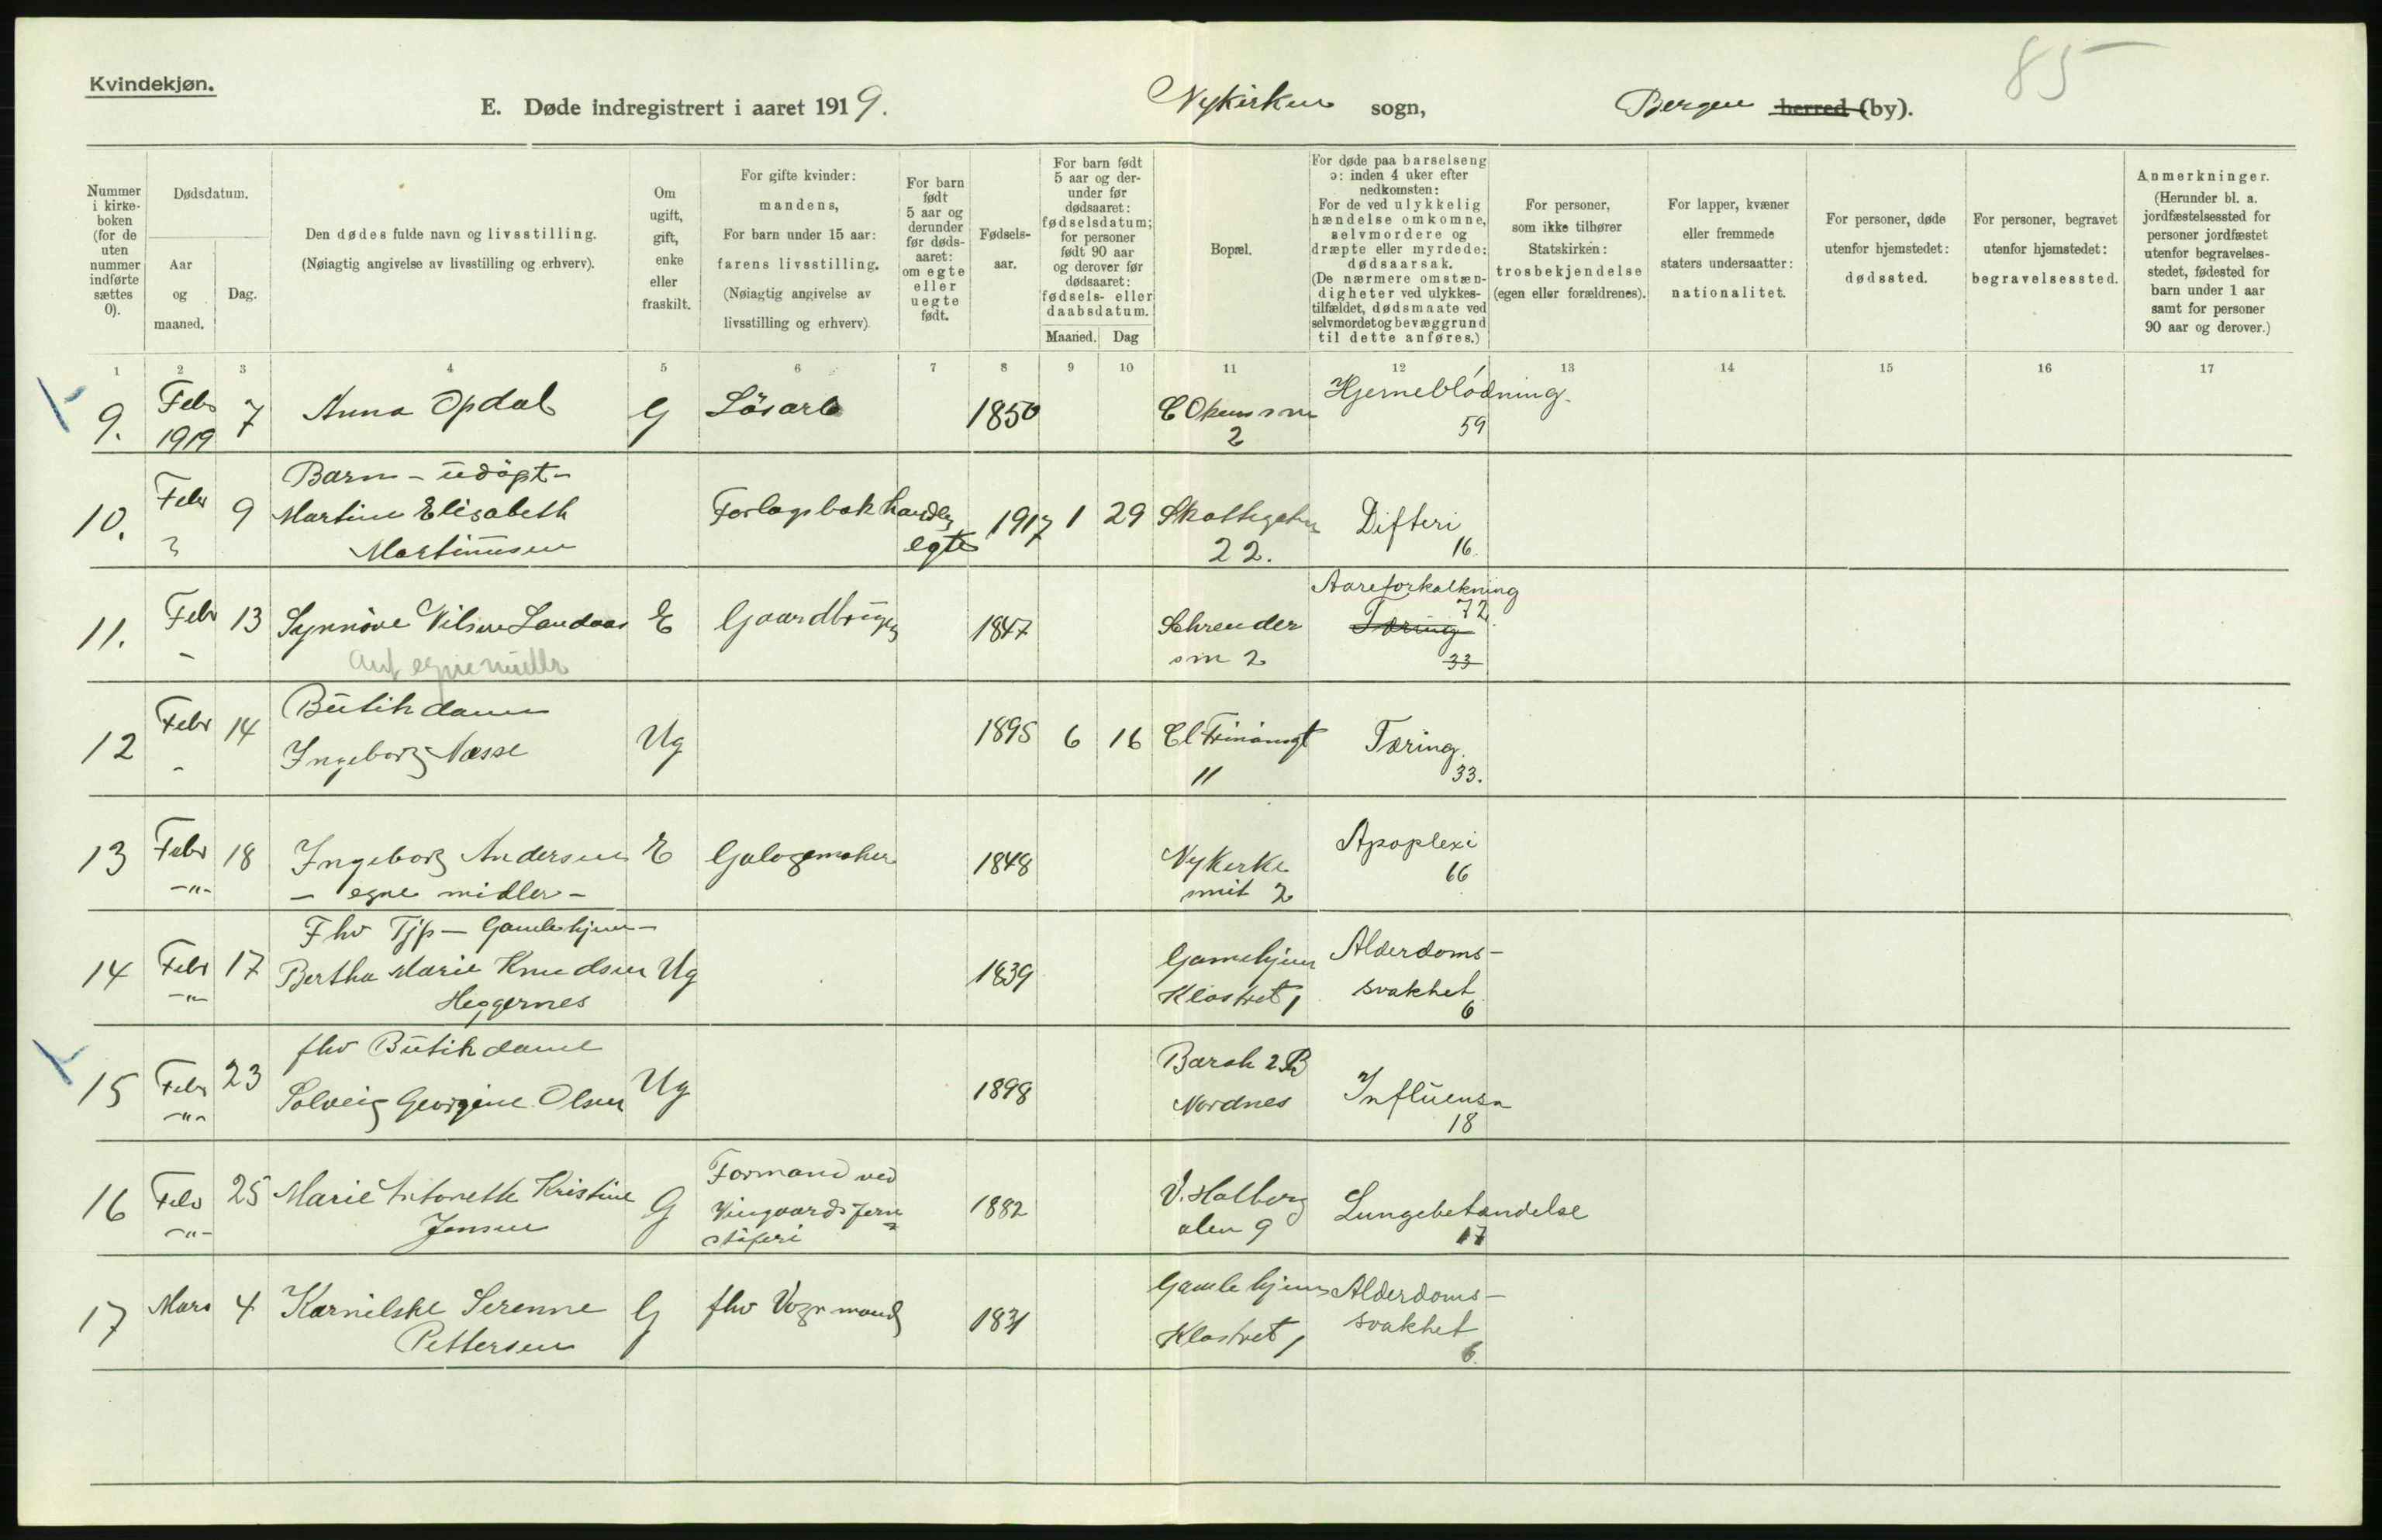 85
Kvindekjøn.
E. Døde indregistrert i aaret 1919. Nykirken sogn, Bergen herred (by).
Nummer i kirke-boken (for de uten nummer indførte sættes 0).
Dødsdatum.
Aar og maaned.
Dag.
Den dødes fulde navn og livsstilling.
(Nøiagtig angivelse av livsstilling og erhverv).
Om ugift, gift, enke eller fraskilt.
For gifte kvinder: mandens,
For barn under 15 aar: farens livsstilling.
(Nøiagtig angivelse av livsstilling og erhverv).
For barn født 5 aar og derunder før døds-aaret: om egte eller uegte født.
Fødsels-aar.
For barn født 5 aar og der-under før dødsaaret: fødselsdatum; for personer født 90 aar og derover før dødsaaret: fødsels- eller daabsdatum.
Maaned. Dag
Bopæl.
For døde paa barselseng ɔ: inden 4 uker efter nedkomsten:
For de ved ulykkelig hændelse omkomne, selvmordere og dræpte eller myrdede: dødsaarsak.
(De nærmere omstæn-digheter ved ulykkes-tilfældet, dødsmaate ved selvmordet og bevæggrund til dette anføres.)
For personer, som ikke tilhører Statskirken: trosbekjendelse (egen eller forældrenes).
For lapper, kvæner eller fremmede staters undersaatter: nationalitet.
For personer, døde utenfor hjemstedet: dødssted.
For personer, begravet utenfor hjemstedet: begravelsessted.
Anmerkninger.
(Herunder bl. a. jordfæstelsessted for personer jordfæstet utenfor begravelses-stedet, fødested for barn under 1 aar samt for personer 90 aar og derover.)
1 2 3 4 5 6 7 8 9 10 11 12 13 14 15 16 17
9. Febr 7 Anna Opdal G Lösarb 1850 Hjerneblödning.
1919 2 59
Barn - udöpt -
10. Febr 9 Martine Elisabeth Forlagsbokhandler 1917 1 29 Skottegaten Difteri
Martinusen egte 22. 16.
Aareforkalkning
72
11. Febr 13 Synnöve Nilsen Landaas E Gaardbruger 1847 Schreuder Tæring
egne midler sm 2 33
Butikdame
12 Febr 14 Ingeborg Næsse Ug 1895 6 16 Tæring.
11 33.
13 Febr 18 Ingeborg Andersen E Galogemaker 1848 Nykirke Apoplexi
-"- - egne midler - smit 2 66
Fhv Tjp - Gamlehjem -
14 Febr 17 Bertha Marie Knudsen Ug 1839 Gamehjem Alderdoms-
-"- Heggernes Klostret 1 svakhet
6
fhv Butikdame
15 Febr 23 Solveig Georgine Olsen Ug 1898 Barak 2B Influensa
-"- Nordnes 18
16 Febr 25 Marie Antonette Kristine G Formand ved 1882 V. Holberg Lungebetændelse
-"- Jensen Vingaards Jern
støperi alm 9 17
17 Mars 4 Karnilske Serenne G fhv Vognmand 1831 Gamlehjem Alderdoms-
Pettersen Klostret 1 svakhet
6.